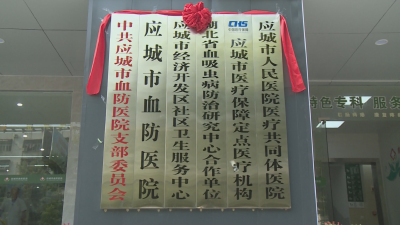 中共应城市血防医院支部委员会
应城市血防医院
应城市经济开发区社区卫生服务中心
湖北省血吸虫病防治研究中心合作单位
CHS
应城市医疗保障定点医疗机构
应城市人民医院医疗共同体医院
特色专科 服务